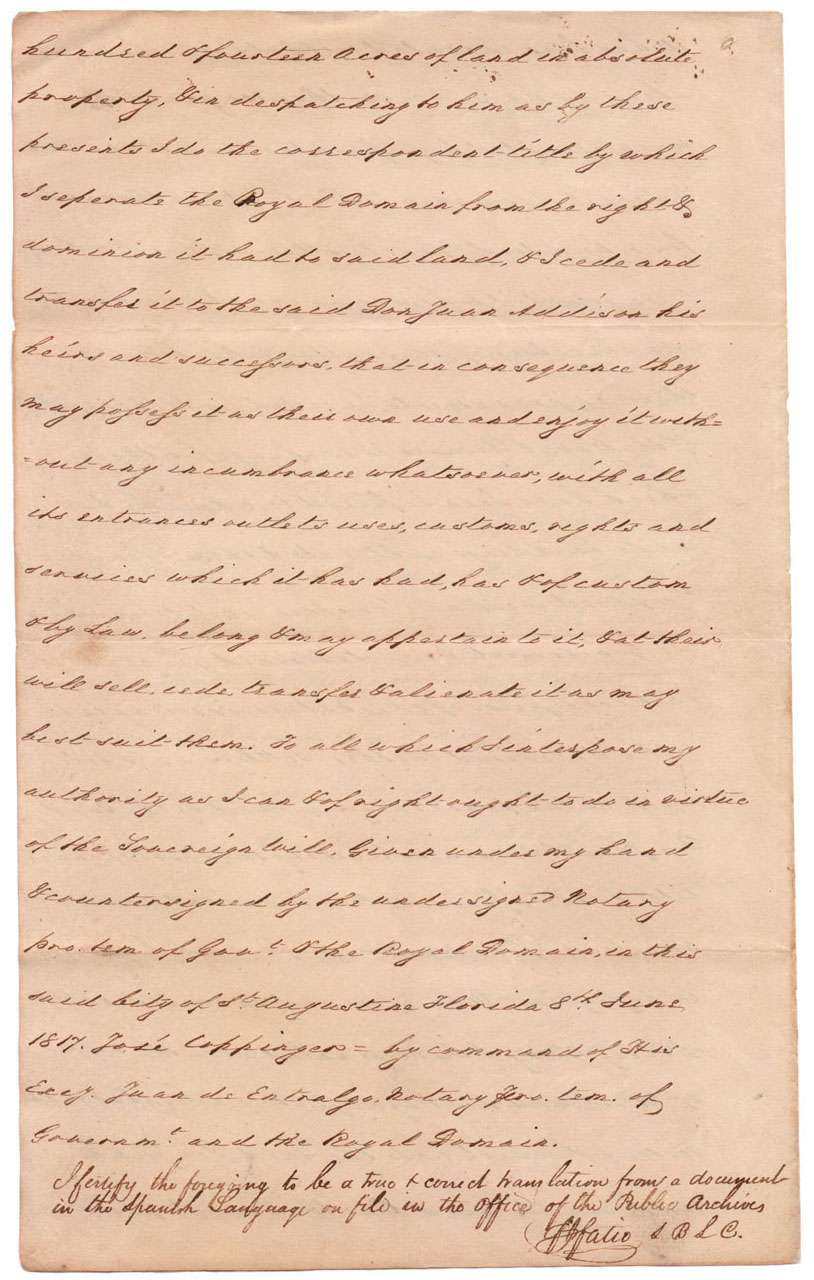 hundred & fourteen Acres of land in absolute
property, & in despatching to him as by these
presents I do the correspondent title by which
I seperate the Royal Domain from the right &
dominion it had to said land, & I cede and
transfer it to the said Don Juan Addison his
heirs and successors, that in consequence they
may possess it as their own use and enjoy it with=
=out any incumbrance whatsoever, with all
its entrances outlets uses, customs, rights and
services which it has had, has & of custom
& by Law, belong & may appertain to it, & at their
will sell, cede, transfer & alienate it as may
best suit them. To all which I interpose my
authority as I can & of right ought to do in virtue
of the Sovereign Will. Given under my hand
& countersigned by the undersigned Notary
pro. tem of Govt. & the Royal Domain, in this
said City of St. Augustine Florida 8th June
1817. José Coppinger = by command of His
Excy. Juan de Entralgo, Notary pro. tem. of
Governmt. and the Royal Domain.
I certify the foregoing to be a true & correct translation from a document
in the Spanish Language on file in the Office of the Public Archives
Fatio S B L C.